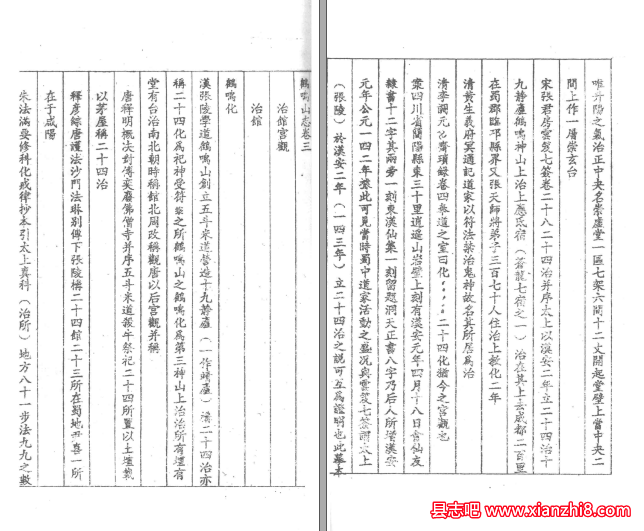 鶴鳴山志卷三
治館宮觀
治館
鶴鳴化
漢張陵學道鶴鳴山創立五斗米道營造十九靜廬（一作精廬）清二十四治亦
稱二十四化爲祀神受符之所鶴鳴山之鶴鳴化爲第三神山上治治所有壇有
堂有台治南北朝時稱館北周改稱觀唐以后宮觀并稱
唐祥明概決對傅奕廢佛僧寺并序五斗米道報年祭祀二十四所置以土壇戴
以茅屋稱二十四治
釋彥悰唐護法沙門法琳別傳下張陵構二十四館二十三所在蜀地尹喜一所
在于咸陽
朱法滿要修科化戒律抄卷引太上真科（治所）地方八十一步法九九之數
唯升陽之氣治正中央名崇虛堂一區七架六間十二丈開起堂壁上當中央二
間上作一層崇玄台
宋張君房雲笈七簽卷二十八二十四治并序太上以漢安二年立二十四治十
九靜廬鶴鳴神山上治上應氐宿（蒼龍七宿之一）治在其上去成都二百里
在蜀郡臨邛縣界又張天師將弟子三百七十人住治上教化二年
清黃生義府冥通記道家以符法禁治鬼神故名其所居爲治
清李調元七齋瑣錄卷四參道之室曰化二十四化猶今之宮觀也
案四川省簡陽縣東三十里逍遙山岩壁上刻有漢安元年四月十八日會仙友
隸書十二字其兩旁一刻東漢仙集一刻留題洞天正書八字乃后人所增漢安
元年公元一四二年據此可見當時蜀中道家活動之盛况與雲笈七簽謂太上
（張陵）於漢安二年（一四三年）立二十四治之說可互爲證明也此摹本
县志吧@
www.xianzhi8.com